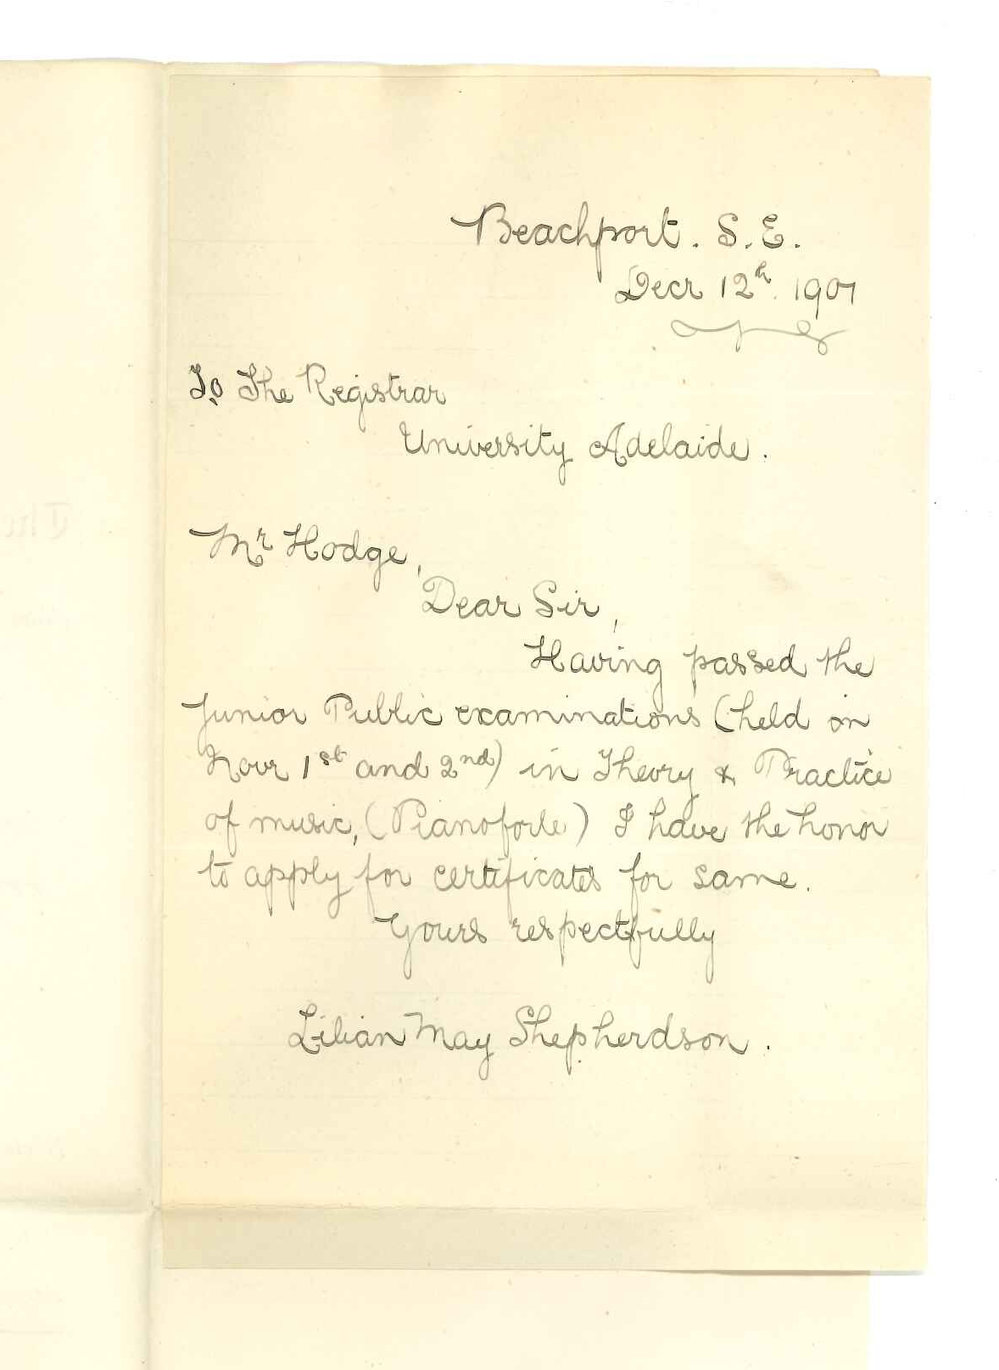 Beachport. S. E.
Decr 12th. 1901
To The Registrar
University Adelaide.
Mr Hodge,
Dear Sir,
Having passed the
Junior Public examinations (held on
Novr 1st and 2nd) in Theory & Practice
of music, (Pianoforte) I have the honor
to apply for certificates for same.
Yours respectfully
Lilian May Shepherdson.